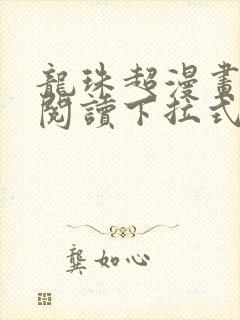 龍珠超漫畫
閱讀下拉式
龔如心